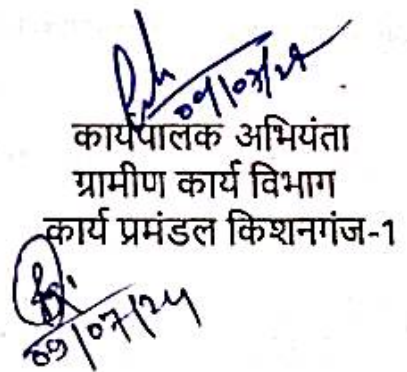 09/07/24
कार्यपालक अभियंता
ग्रामीण कार्य विभाग
कार्य प्रमंडल किशनगंज-1
09/07/24